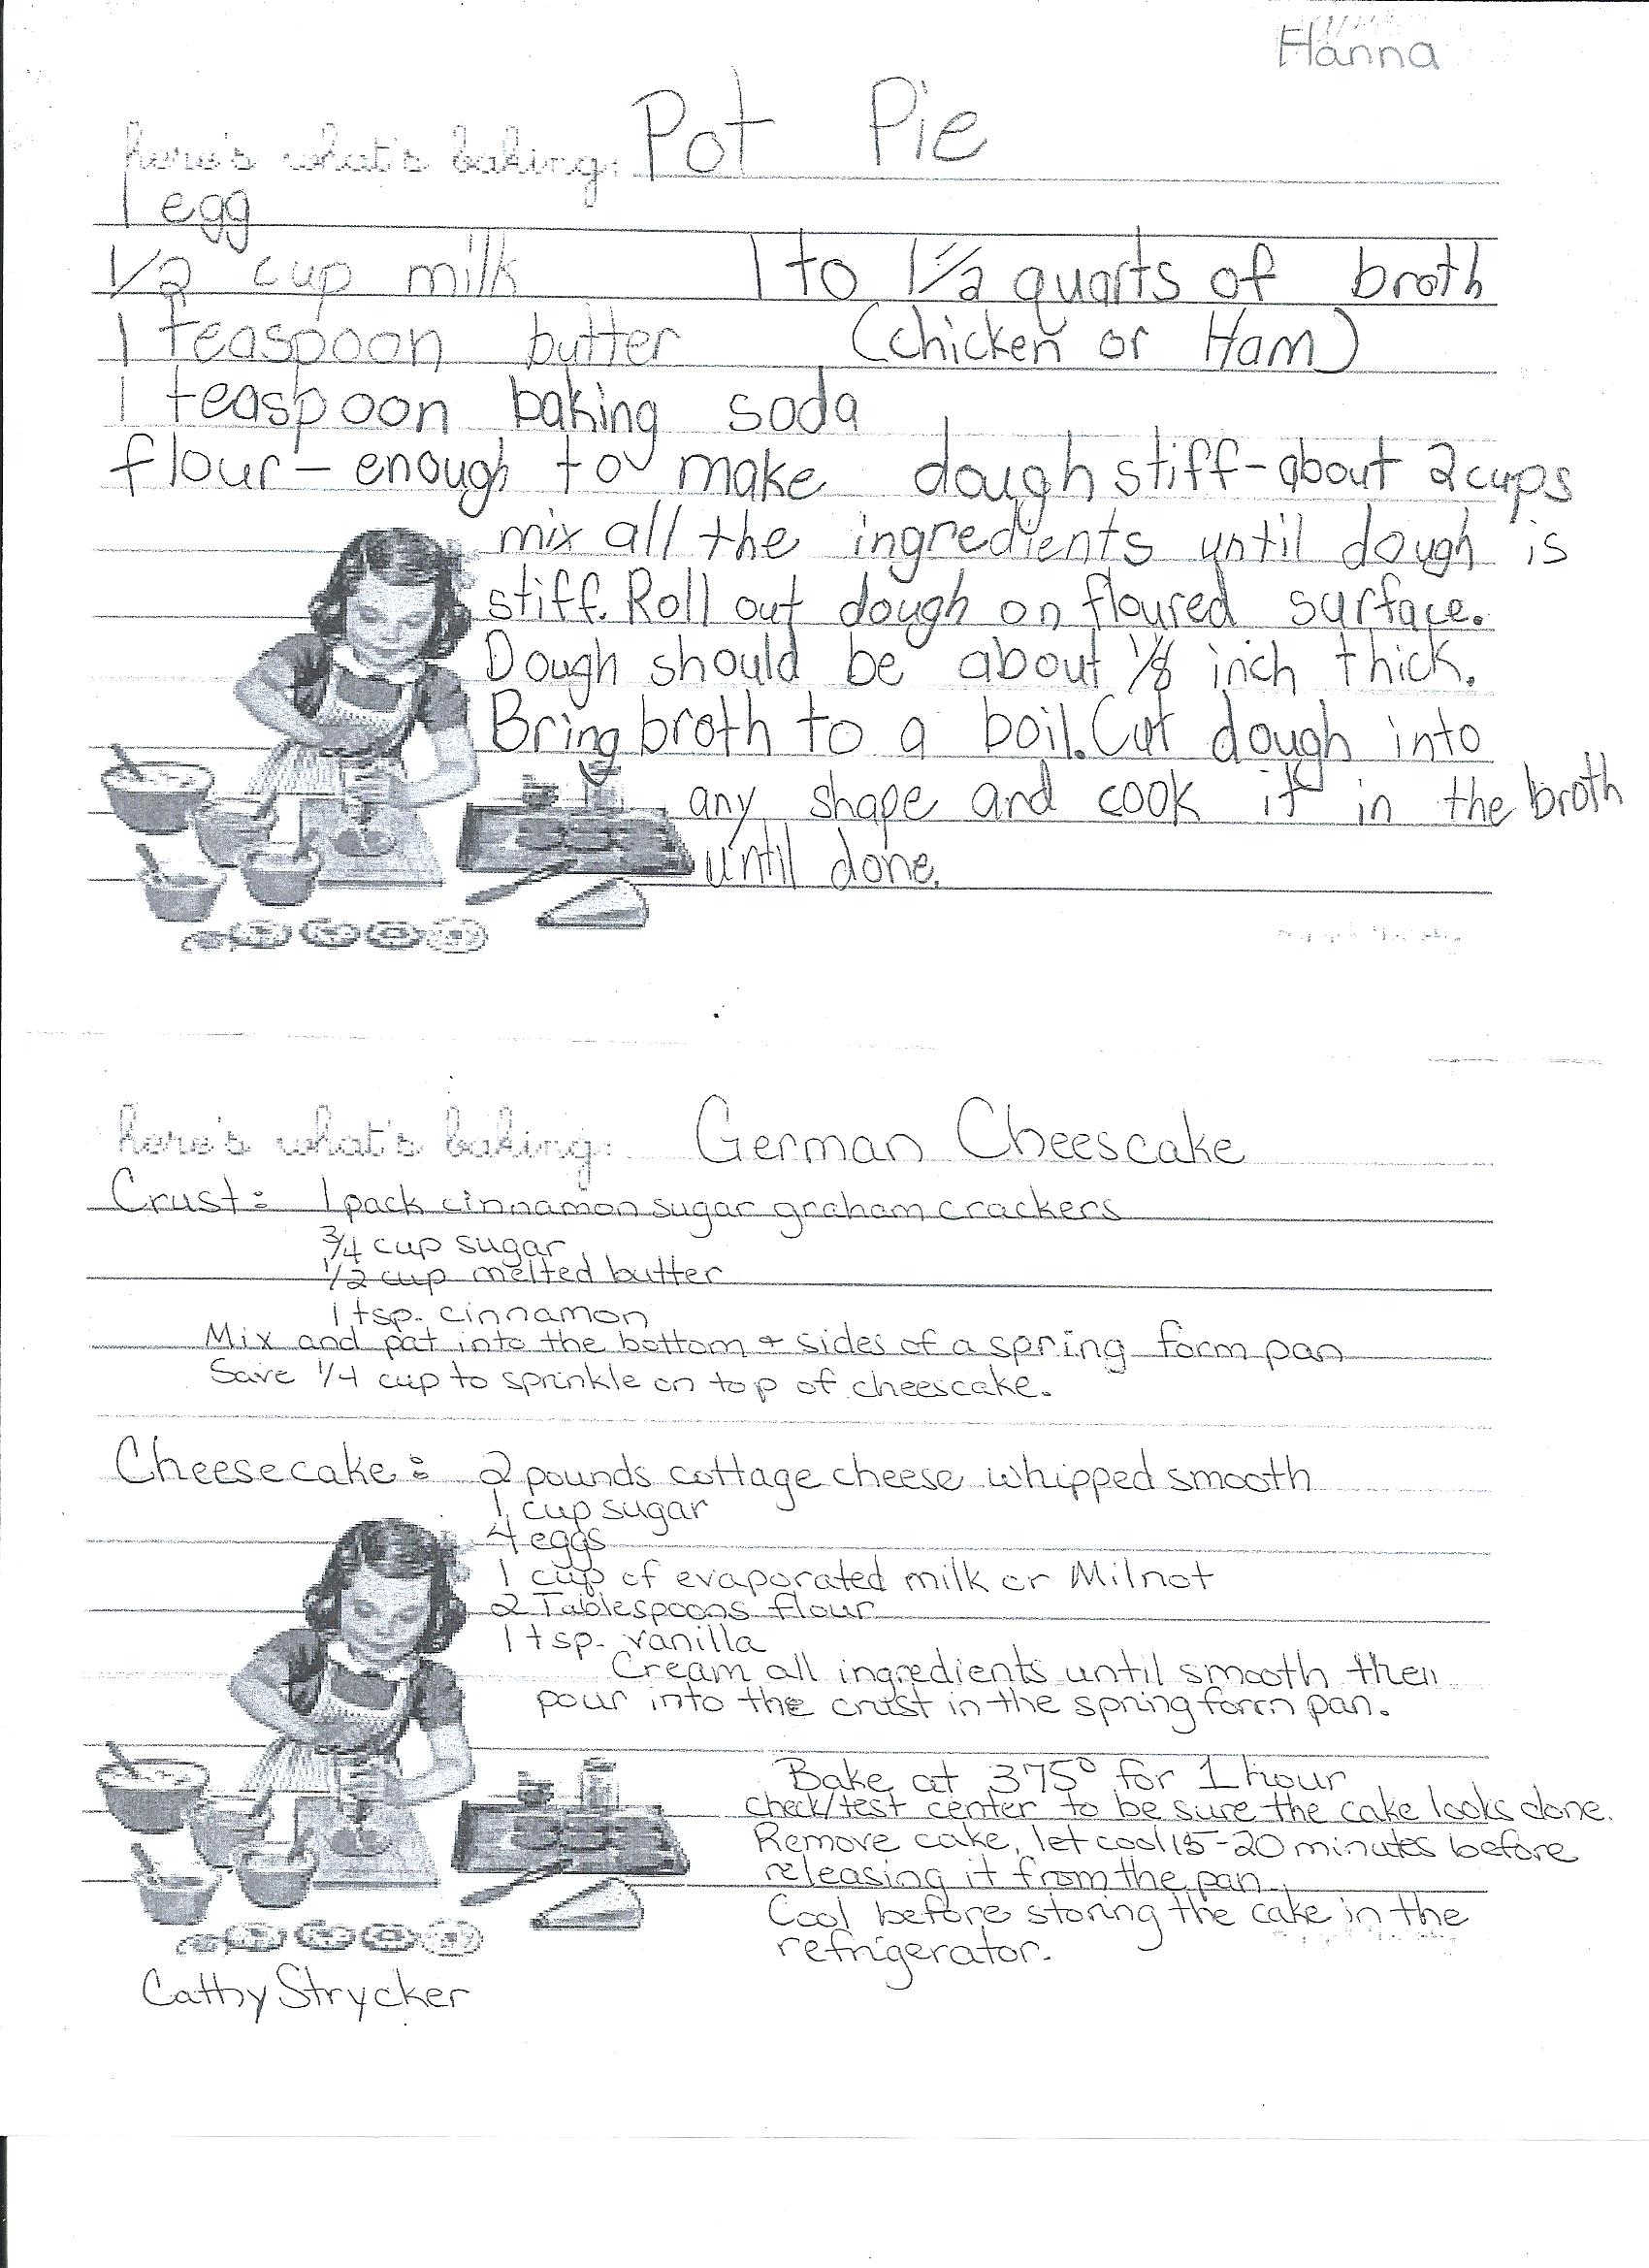 Hanna
here's what's baking: Pot Pie
1 egg
1/2 cup milk 1 to 1 1/2 quarts of broth
1 teaspoon butter (chicken or Ham)
1 teaspoon baking soda
flour - enough to make dough stiff - about 2 cups
mix all the ingredients until dough is
stiff. Roll out dough on floured surface.
Dough should be about 1/8 inch thick.
Bring broth to a boil. Cut dough into
any shape and cook it in the broth
until done.
here's what's baking: German Cheescake
Crust: 1 pack cinnamon sugar graham crackers
3/4 cup sugar
1/2 cup melted butter
1 tsp. cinnamon
Mix and pat into the bottom + sides of a spring form pan
Save 1/4 cup to sprinkle on top of cheescake.
Cheesecake: 2 pounds cottage cheese whipped smooth
1 cup sugar
4 eggs
1 cup of evaporated milk or Milnot
2 Tablespoons flour
1 tsp. vanilla
Cream all ingredients until smooth then
pour into the crust in the spring form pan.
Bake at 375° for 1 hour
check/test center to be sure the cake looks done.
Remove cake, let cool 15-20 minutes before
releasing it from the pan.
Cool before storing the cake in the
refrigerator.
Cathy Strycker